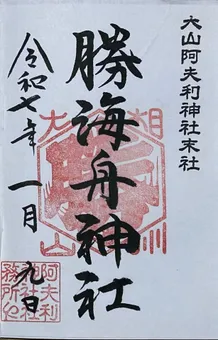 大山阿夫利神社末社
勝海舟神社
令和七年一月九日
相
大山
川
阿夫利
神社社
務所之